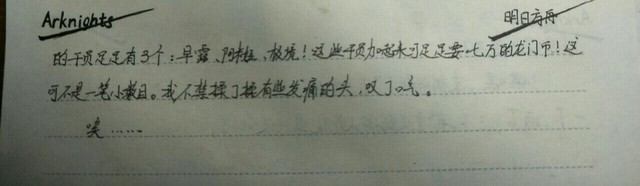 Arknights 明日方舟
的干员足足有3个：早露、阿米娅、极境！这些干员加起来可足足要七万的龙门币！这
可不是一笔小数目。我不禁揉了揉有些发痛的头，叹了口气。
唉……